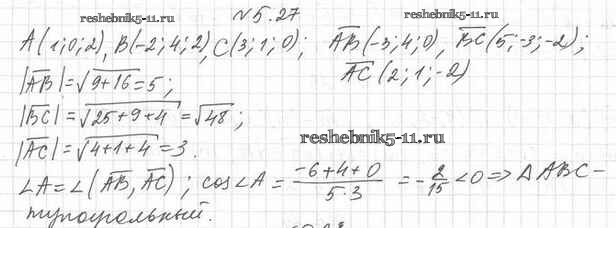 №5.27
reshebnik5-11.ru
reshebnik5-11.ru
A(1;0;2), B(-2;4;2), C(3;1;0); AB(-3;4;0), BC(5;-3;-2);
AC(2;1;-2)
|AB|=√9+16=5;
|BC|=√25+9+4=√48;
reshebnik5-11.ru
|AC|=√4+1+4=3.
∠A=∠(AB, AC); cos∠A = (-6+4+0)/(5·3) = -2/15 <0 => ΔABC –
тупоугольный.